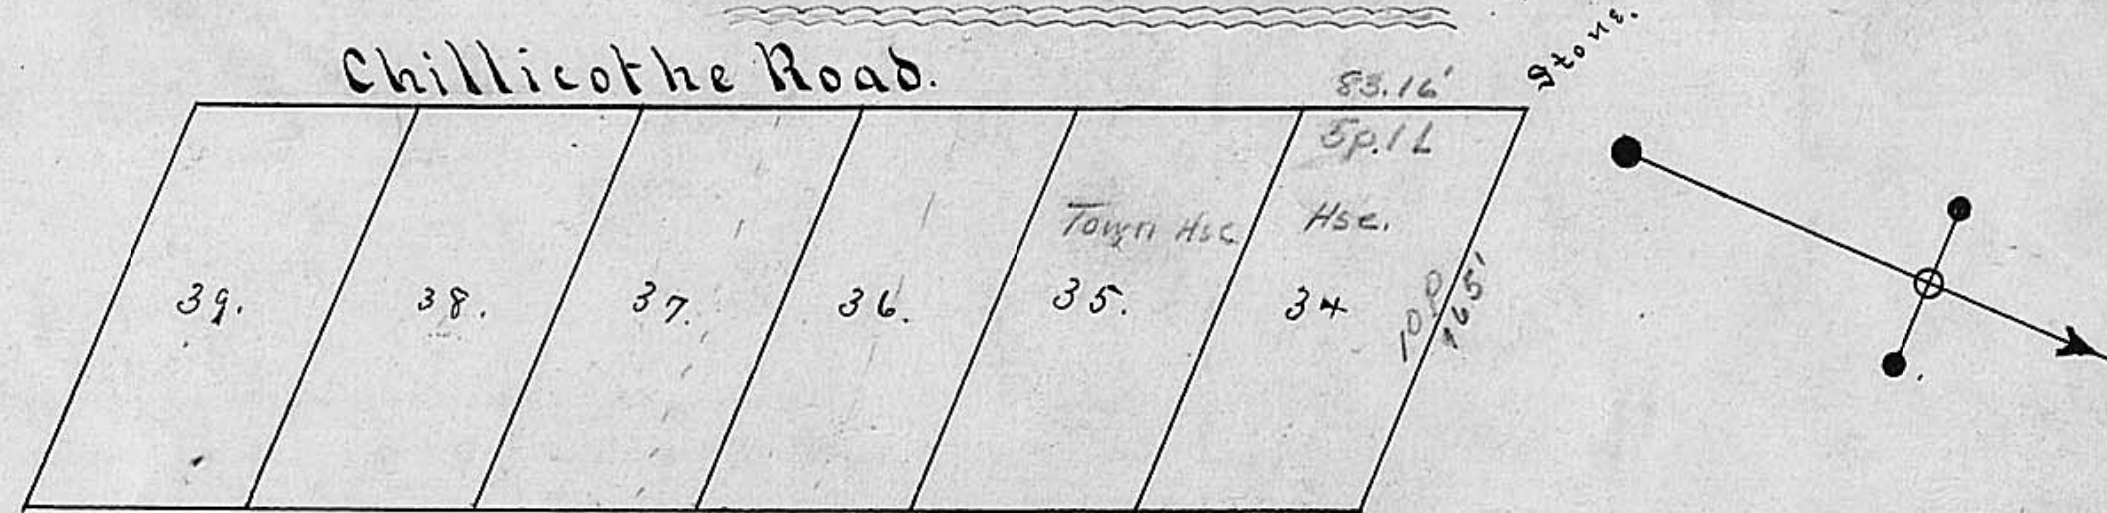 Stone.
Chillicothe Road.
83.16'
5p. 1 L
Town Hse Hse.
39. 38. 37. 36. 35. 34
10 p
165'